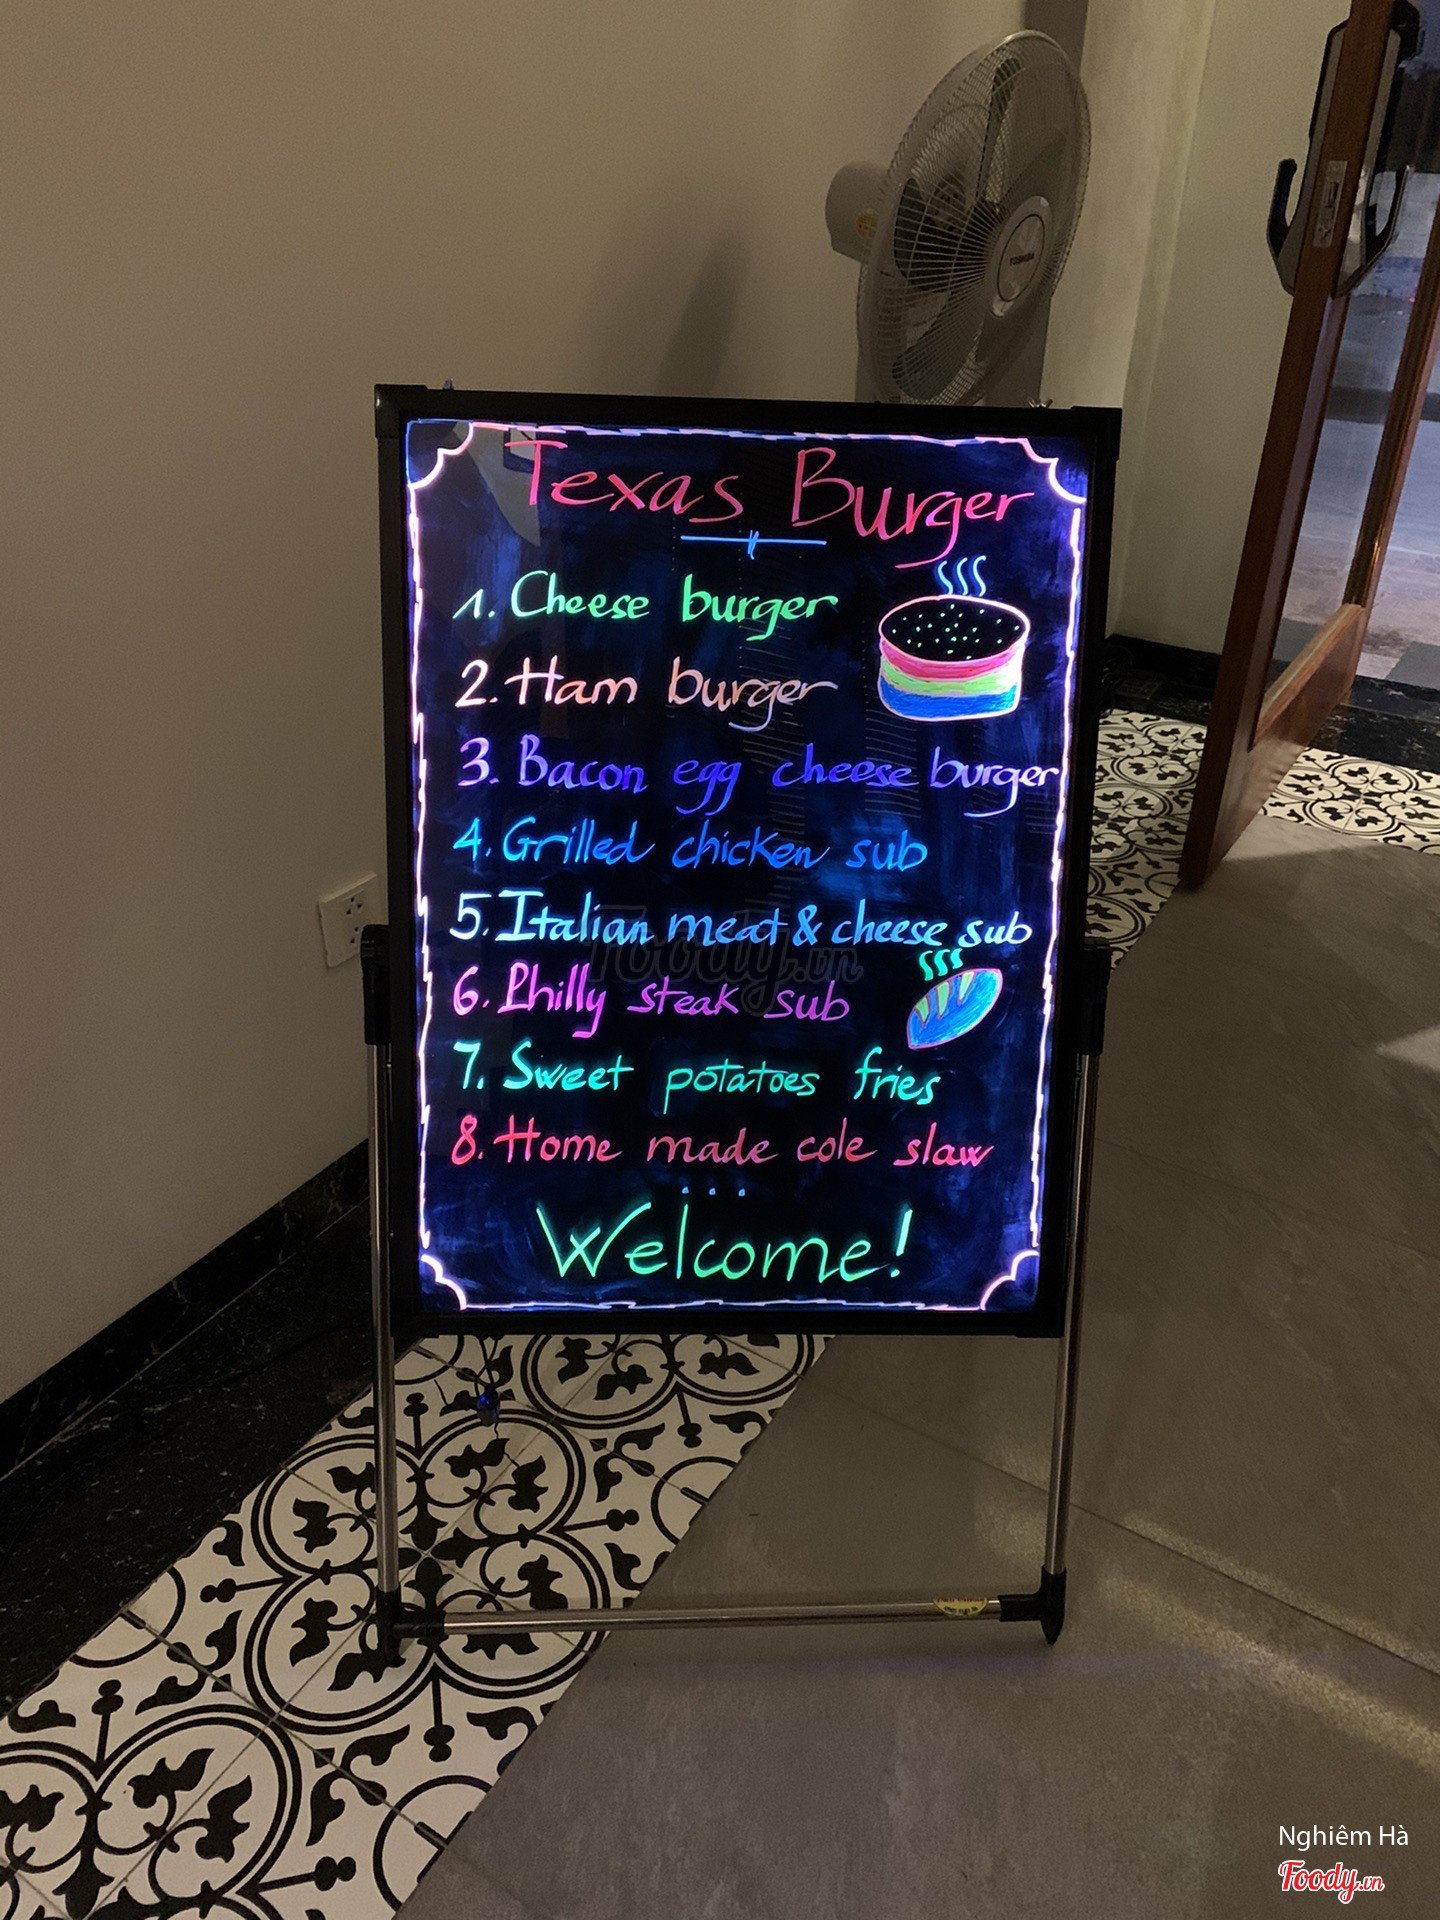 TOSHIBA
Texas Burger
1. Cheese burger
2. Ham burger
3. Bacon egg cheese burger
4. Grilled chicken sub
5. Italian meat & cheese sub
Foody.vn
6. Philly steak sub
7. Sweet potatoes fries
8. Home made cole slaw
...
Welcome!
Nghiêm Hà
Foody.vn